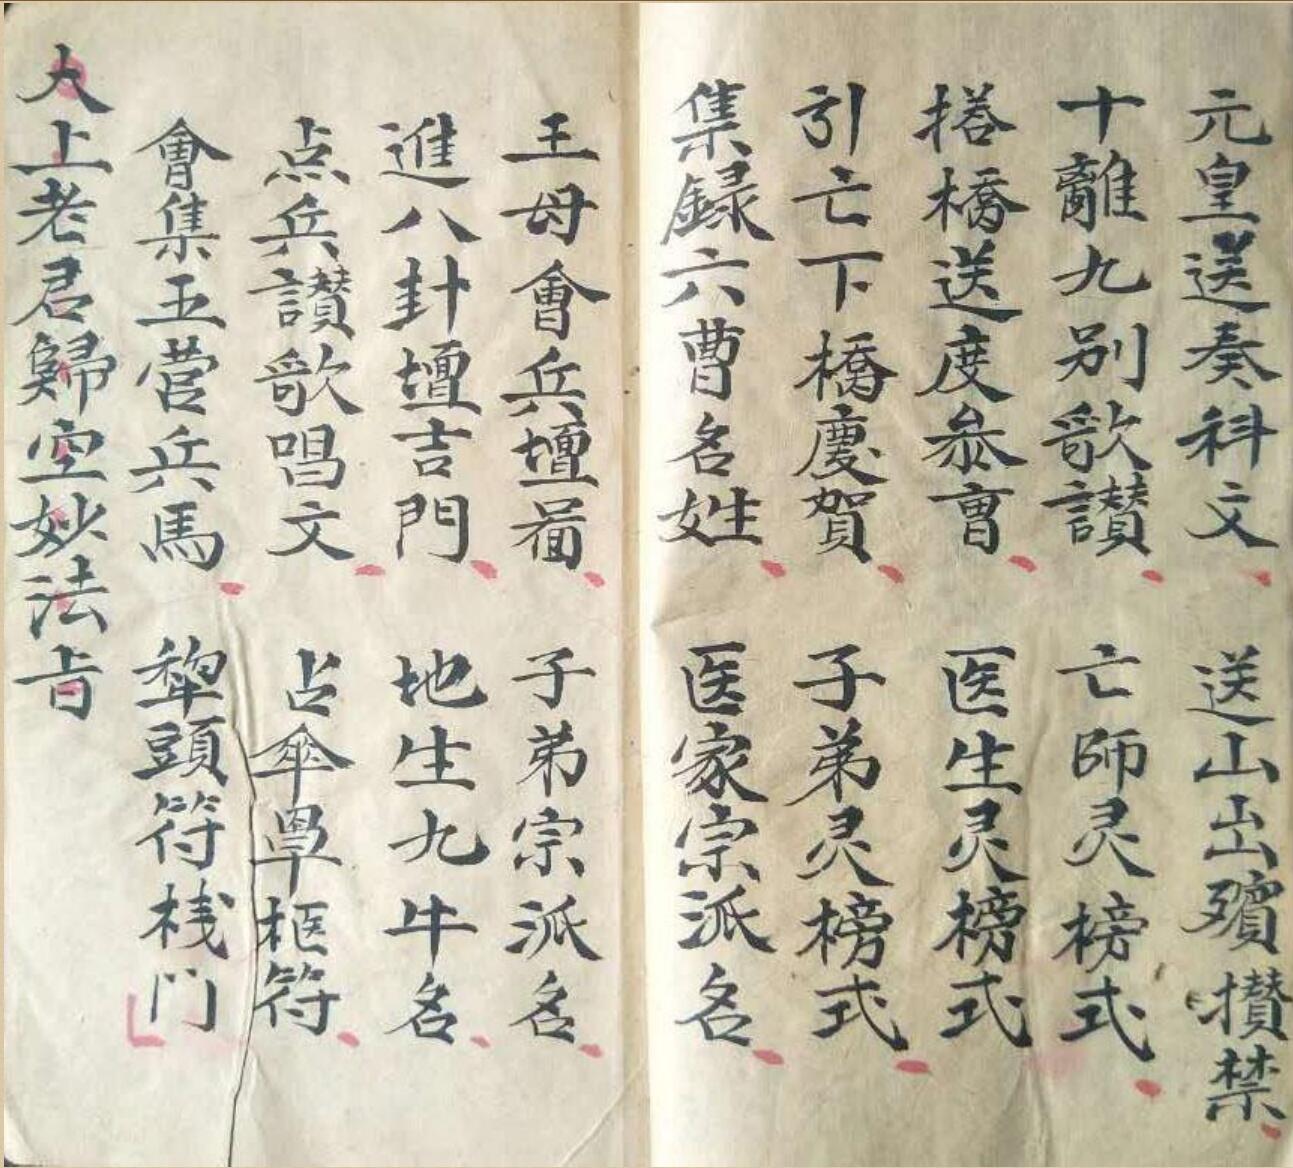 元皇送奏科文 送山出殯攢禁
十離九别歌讃 亡師灵榜式
搭橋送度叅曹 医生灵榜式
引亡下橋慶賀 子弟灵榜式
集録六曹名姓 医家宗派名
王母會兵壇啚 子弟宗派名
進八卦壇吉門 地生九牛名
点兵讃歌唱文 占傘罩框符
會集五营兵馬 犂頭符栈门
太上老君歸空妙法旨